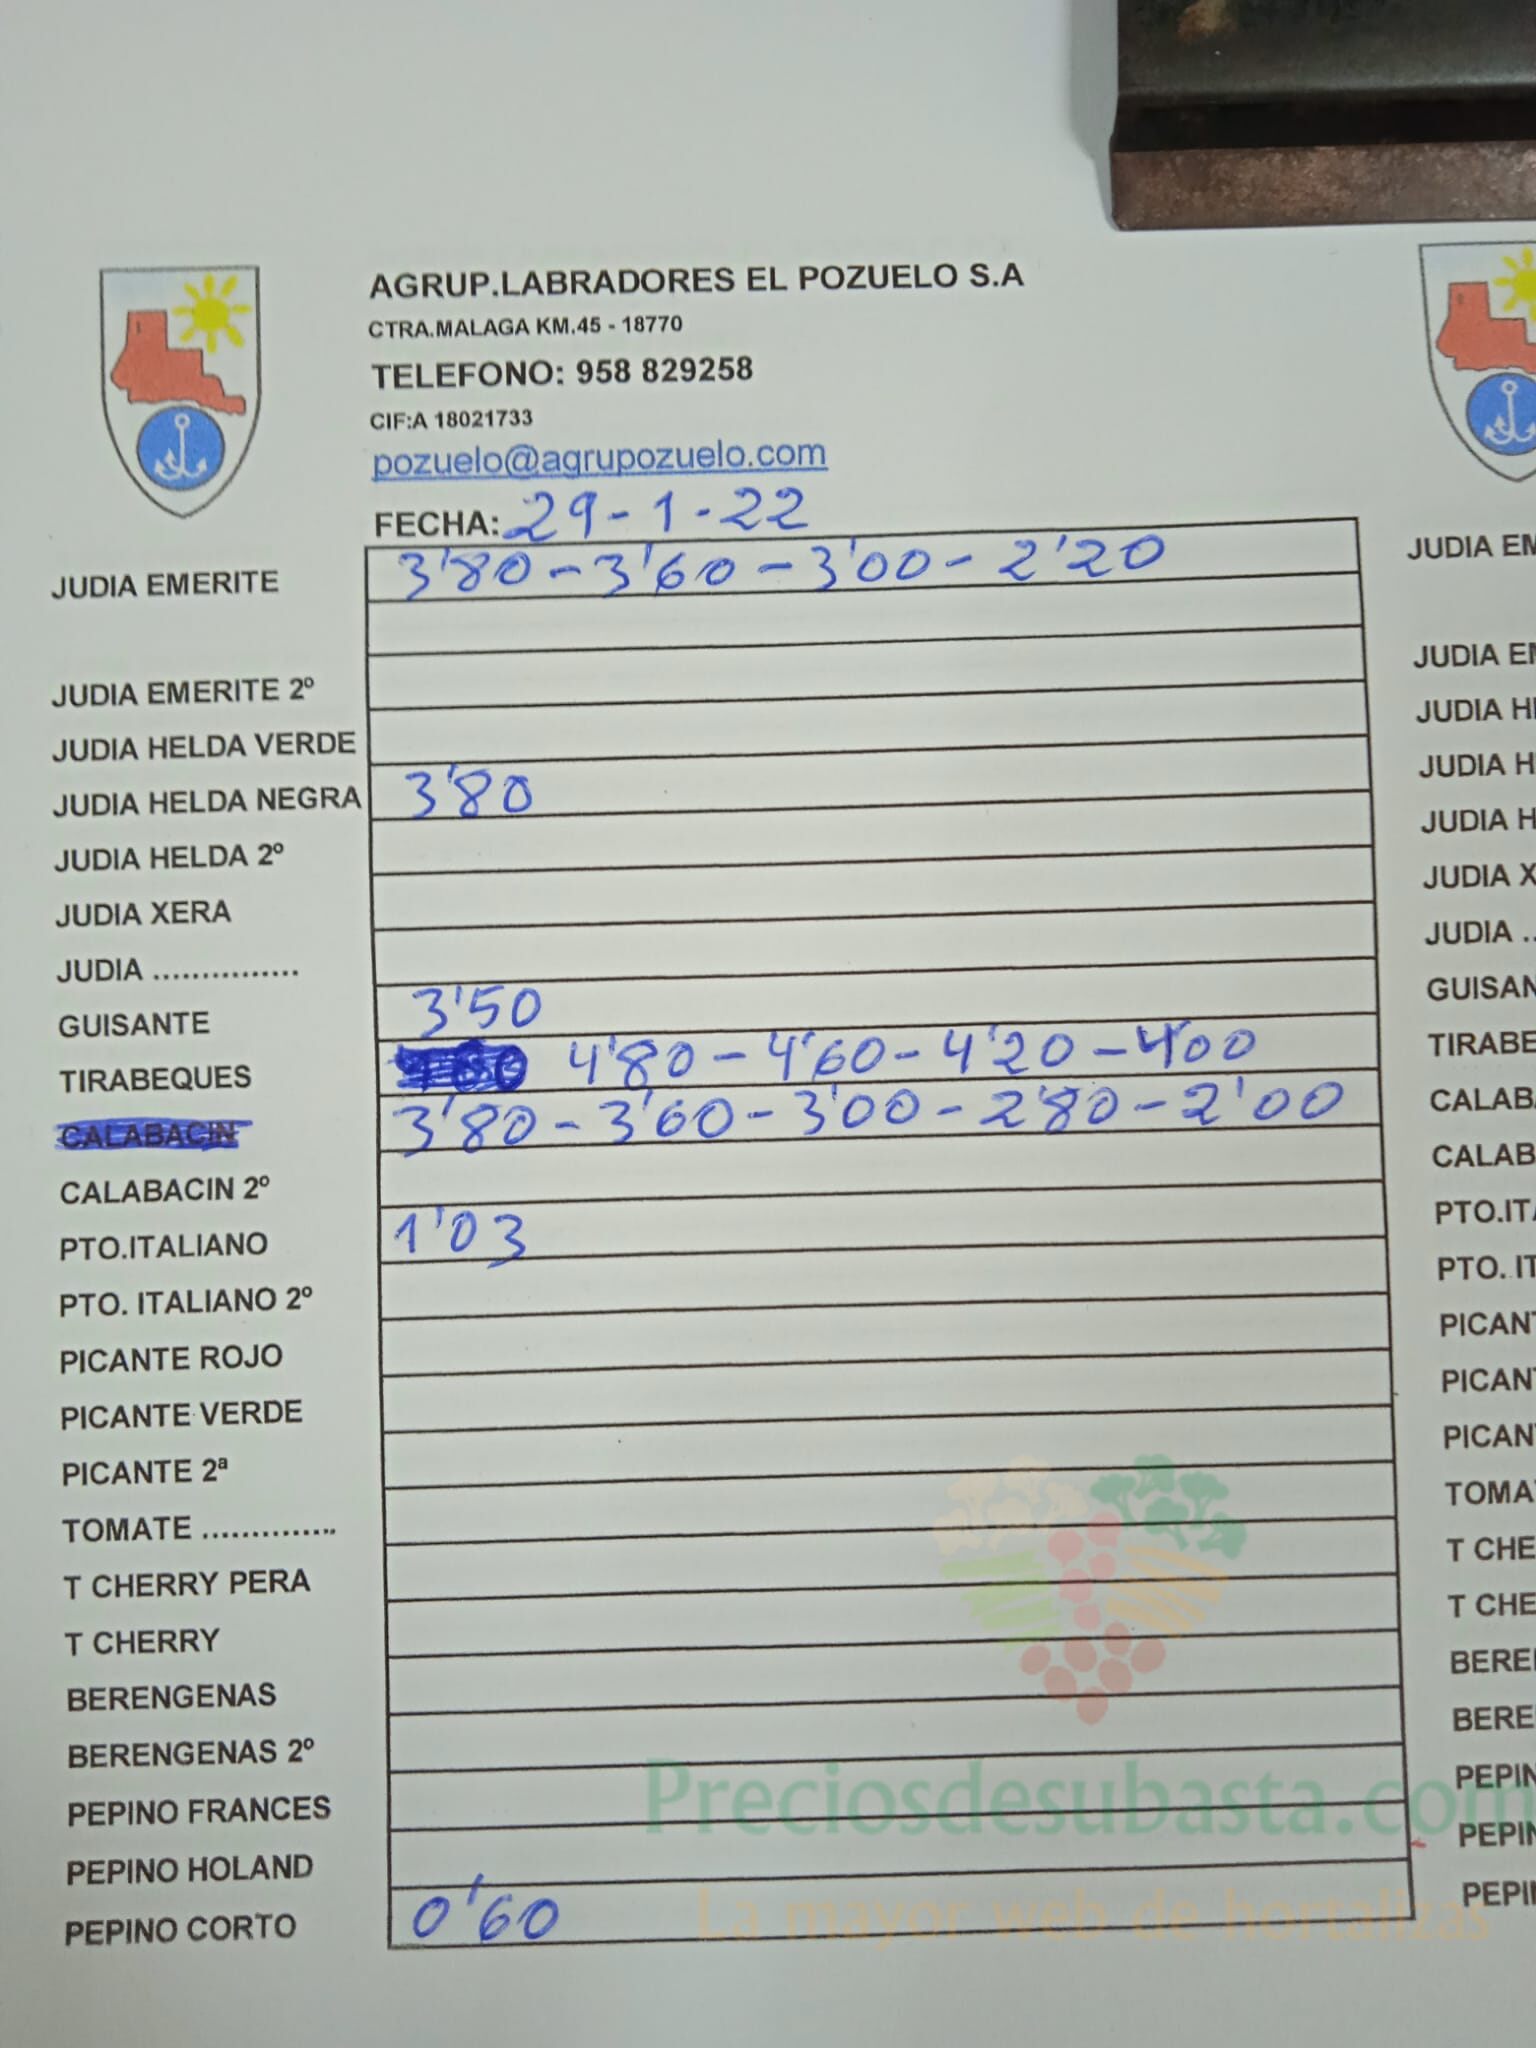 AGRUP.LABRADORES EL POZUELO S.A
CTRA.MALAGA KM.45 - 18770
TELEFONO: 958 829258
CIF:A 18021733
pozuelo@agrupozuelo.com
FECHA: 29-1-22
JUDIA EMERITE 3'80 - 3'60 - 3'00 - 2'20
JUDIA EMERITE 2º
JUDIA HELDA VERDE
JUDIA HELDA NEGRA 3'80
JUDIA HELDA 2º
JUDIA XERA
JUDIA ...............
GUISANTE 3'50
TIRABEQUES 4'80 - 4'60 - 4'20 - 4'00
CALABACIN 3'80 - 3'60 - 3'00 - 2'80 - 2'00
CALABACIN 2º
PTO.ITALIANO 1'03
PTO. ITALIANO 2º
PICANTE ROJO
PICANTE VERDE
PICANTE 2ª
TOMATE ..............
T CHERRY PERA
T CHERRY
BERENGENAS
BERENGENAS 2º
PEPINO FRANCES
PEPINO HOLAND
PEPINO CORTO 0'60
JUDIA EM
JUDIA EM
JUDIA HE
JUDIA H
JUDIA H
JUDIA X
JUDIA ..
GUISAN
TIRABE
CALABA
CALAB
PTO.ITA
PTO. IT
PICANT
PICANT
PICANT
TOMA
T CHE
T CHE
BERE
BERE
PEPIN
PEPIN
PEPI
Preciosdesubasta.com
La mayor web de hortalizas